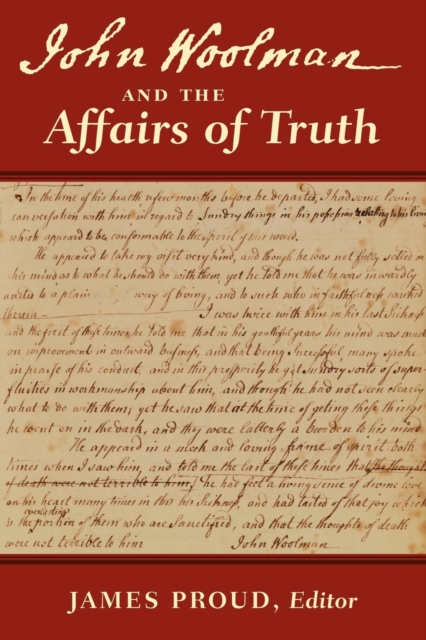 John Woolman
AND THE
Affairs of Truth
In the time of his health a few months before he departed, I had some loving
conversation with him in regard to sundry things in his possession relating to his living
which appeared to be conformable to the spirit of this world.
He appeared to take my visit very kind, and though he was not fully settled in
his mind as to what he should do with them, yet he told me that he was inwardly
united to a plain way of living, and to such who in faithfulness walked
therein I was twice with him in his last Sickness
and the first of these times, he told me that in his youthful years his mind was much
on improvement in outward business, and that being Successful, many spoke
in praise of his conduct, and in this prosperity he got sundry sorts of super-
fluities in workmanship about him, and though he had not seen clearly
what to do with them; yet he saw that at the time of geting these things
he went on in the dark, and they were latterly a burden to his mind
He appeared in a meek and loving frame of spirit both
times when I saw him, and told me the last of these times that the thoughts
of death were not terrible to him; he had felt a living sense of divine love
on his heart many times in this his Sickness, and had tasted of that joy which
everlasting
is the portion of them who are Sanctified, and that the thoughts of death
were not terrible to him John Woolman
JAMES PROUD, Editor